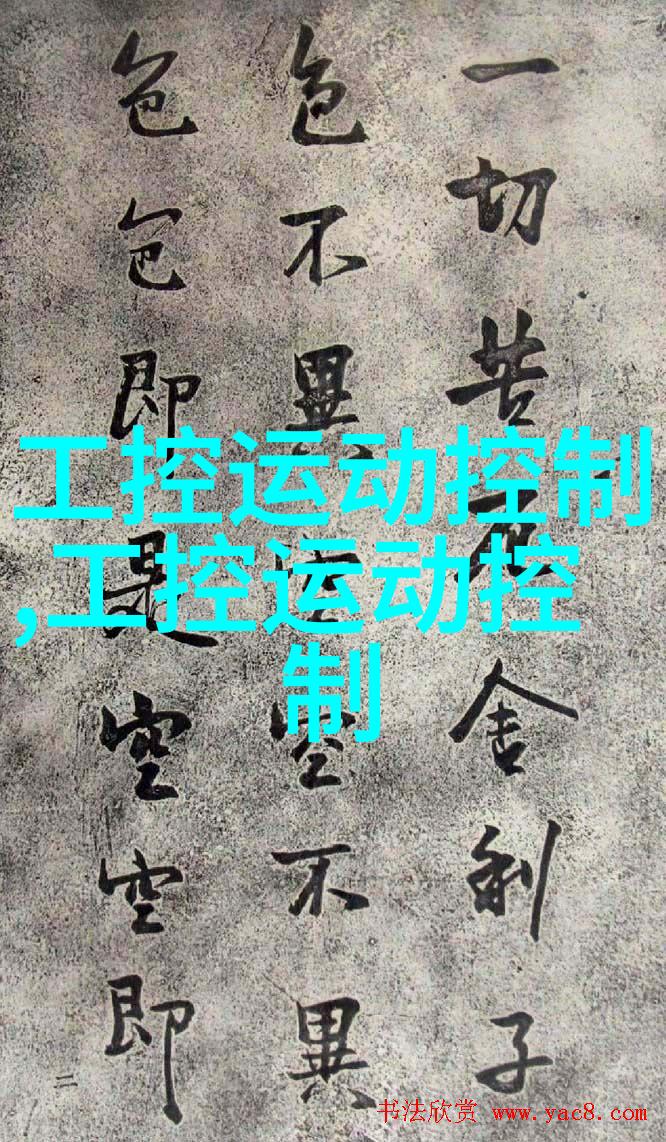 一切苦厄舍利子
色不異空空不異
色色即是空空即
二
工控运动控制
,工控运动控
制
书法欣赏 www.yac8.com